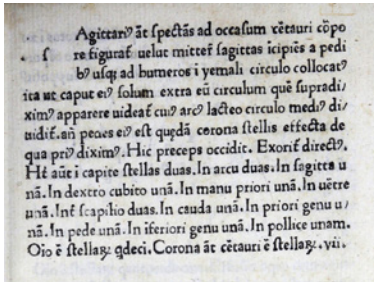 Agittariꝰ āt ſpectās ad occaſum cētauri cōpo
ſ re figurat᷑ uelut mitter̄ ſagittas īcipiēs a pedi
bꝰ uſqꝫ ad humeros i yemali circulo collocatꝰ
ita ut caput eiꝰ ſolum extra eū circulum quē ſupradi/
ximꝰ apparere uideat᷑ cuiꝰ arcꝰ lacteo circulo mediꝰ di/
uidit᷑. āñ pedes eiꝰ eſt quędā corona ſtellis effecta de
qua priꝰ diximꝰ. Hic preceps occidit. Exorit᷑ directꝰ.
Ht̄ aūt i capite ſtellas duas. In arcu duas. In ſagitta u
nā. In dextro cubito unā. In manu priori unā. In uētre
unā. Int̄ ſcapilio duas. In cauda unā. In priori genu u/
nā. In pede unā. In īferiori genu unā. In pollice unam.
Oīo ē ſtellaꝝ qdeci. Corona āt cētauri ē ſtellaꝝ. vii.